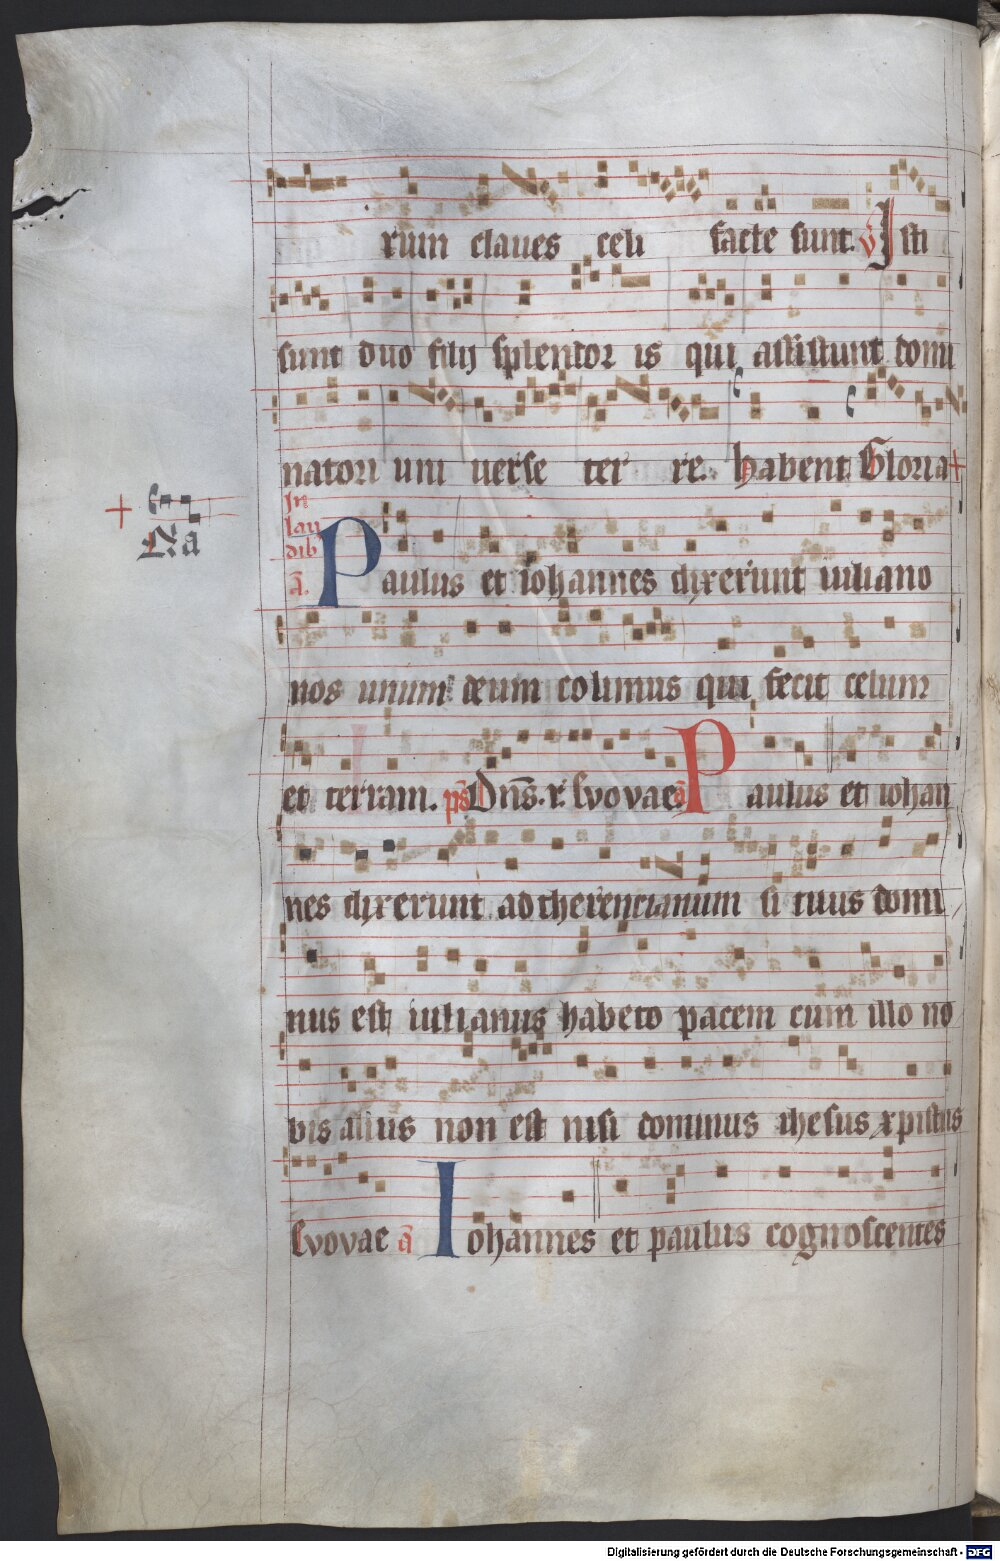 rum claues celi facte sunt. v̄ Isti
sunt duo filij splendor is qui assistunt domi
natori uni uerse ter re. habent Gloria +
+ Na
In
lau
dib
ā. Paulus et iohannes dixerunt iuliano
nos unum deum colimus qui fecit celum
et terram. ps Dn̄s. r. Evovae ā Paulus et iohan
nes dixerunt ad therencianum si tuus domi
nus est iulianus habeto pacem cum illo no
bis alius non est nisi dominus ihesus xpistus
Evovae ā Iohannes et paulus cognoscentes
Digitalisierung gefördert durch die Deutsche Forschungsgemeinschaft - DFG